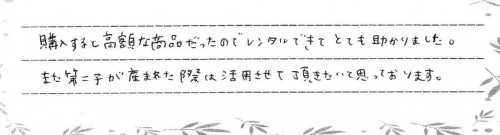 購入すると高額な商品だったのでレンタルできてとても助かりました。
また第二子が産まれた際は活用させて頂きたいと思っております。